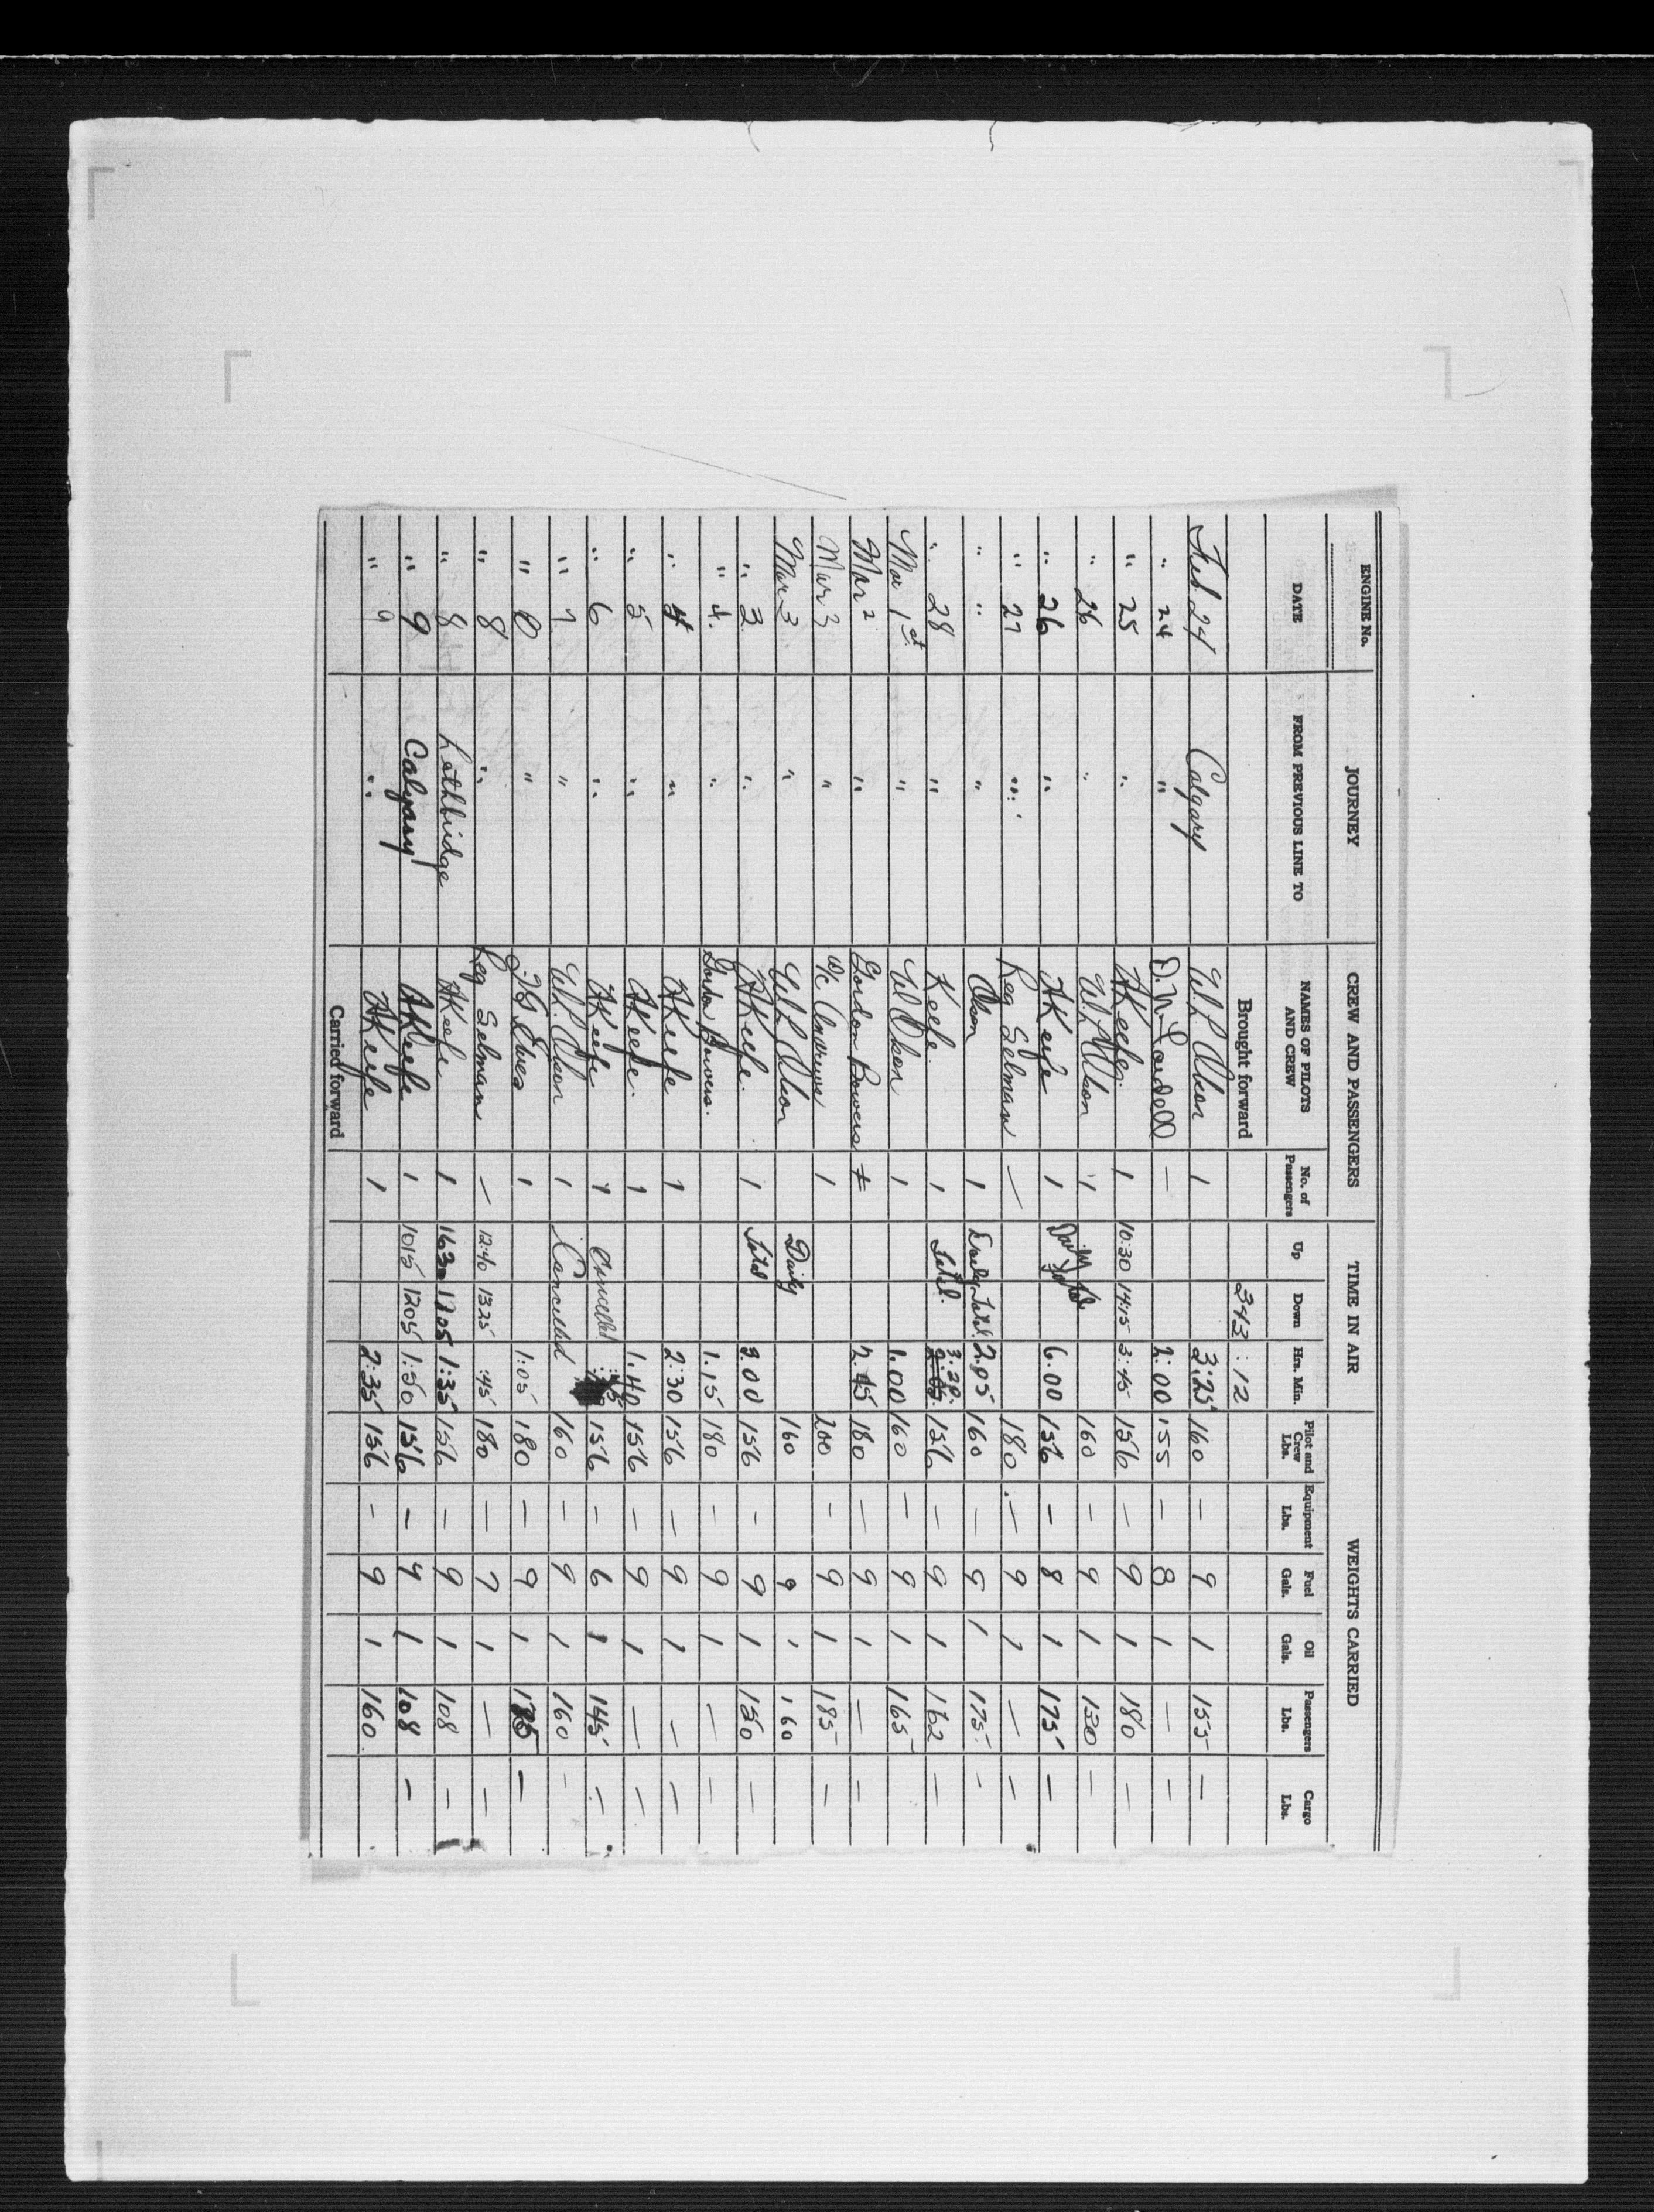 ENGINE No. JOURNEY CREW AND PASSENGERS TIME IN AIR WEIGHTS CARRIED
DATE FROM PREVIOUS LINE TO NAMES OF PILOTS AND CREW No. of Passengers Up Down Hrs. Min. Pilot and Crew Lbs. Equipment Lbs. Fuel Gals. Oil Gals. Passengers Lbs. Cargo Lbs.
Brought forward 343:12
Feb 24 Calgary W.P. Olson 1 3:25 160 — 9 1 155 —
" 24 " D.M. — 2:00 155 — 8 1 — —
" 25 " AKeefe 1 10:30 14:15 3:45 156 — 9 1 180 —
" 26 " W.P. Olson 1 160 — 9 1 130 —
" 26 " AKeefe 1 6.00 156 — 8 1 175 —
" 27 " Reg Selman — 180 — 9 1 — —
" " " Olson 1 Daily Total. 2.05 160 — 9 1 175 -
" 28 " Keefe 1 Total. 3.20 156 — 9 1 162 —
Mar 1st " W Olson 1 1.00 160 — 9 1 165
Mar 2 " Gordon Bowers 2.45 180 — 9 1 — —
Mar 3 " W/C Andrews 1 200 - 9 1 185 —
Mar 3 " W.P. Olson Daily 160 9 1 160
" 3 " AKeefe 1 Total 3.00 156 - 9 1 150 —
" 4. " Gordon Bowers. 1.15 180 - 9 1 — —
" 4 " AKeefe 1 2:30 156 — 9 1 — —
" 5 " AKeefe 1 1.40 156 — 9 1 — —
" 6 " AKeefe 1 Cancelled 156 — 6 1 145 —
" 7 " W.P. Olson 1 Cancelled 160 — 9 1 160 -
" 8 " 1 1:05 180 — 9 1 —
" 8 " Reg Selman — 12:40 1325 :45 180 — 7 1 — —
" 8 Lethbridge AKeefe 1 1630 1705 1:35 156 — 9 1 108 —
" 9 Calgary AKeefe 1 1015 1205 1:50 156 - 9 1 108 -
" 9 " AKeefe 1 2:35 156 - 9 1 160.
Carried forward